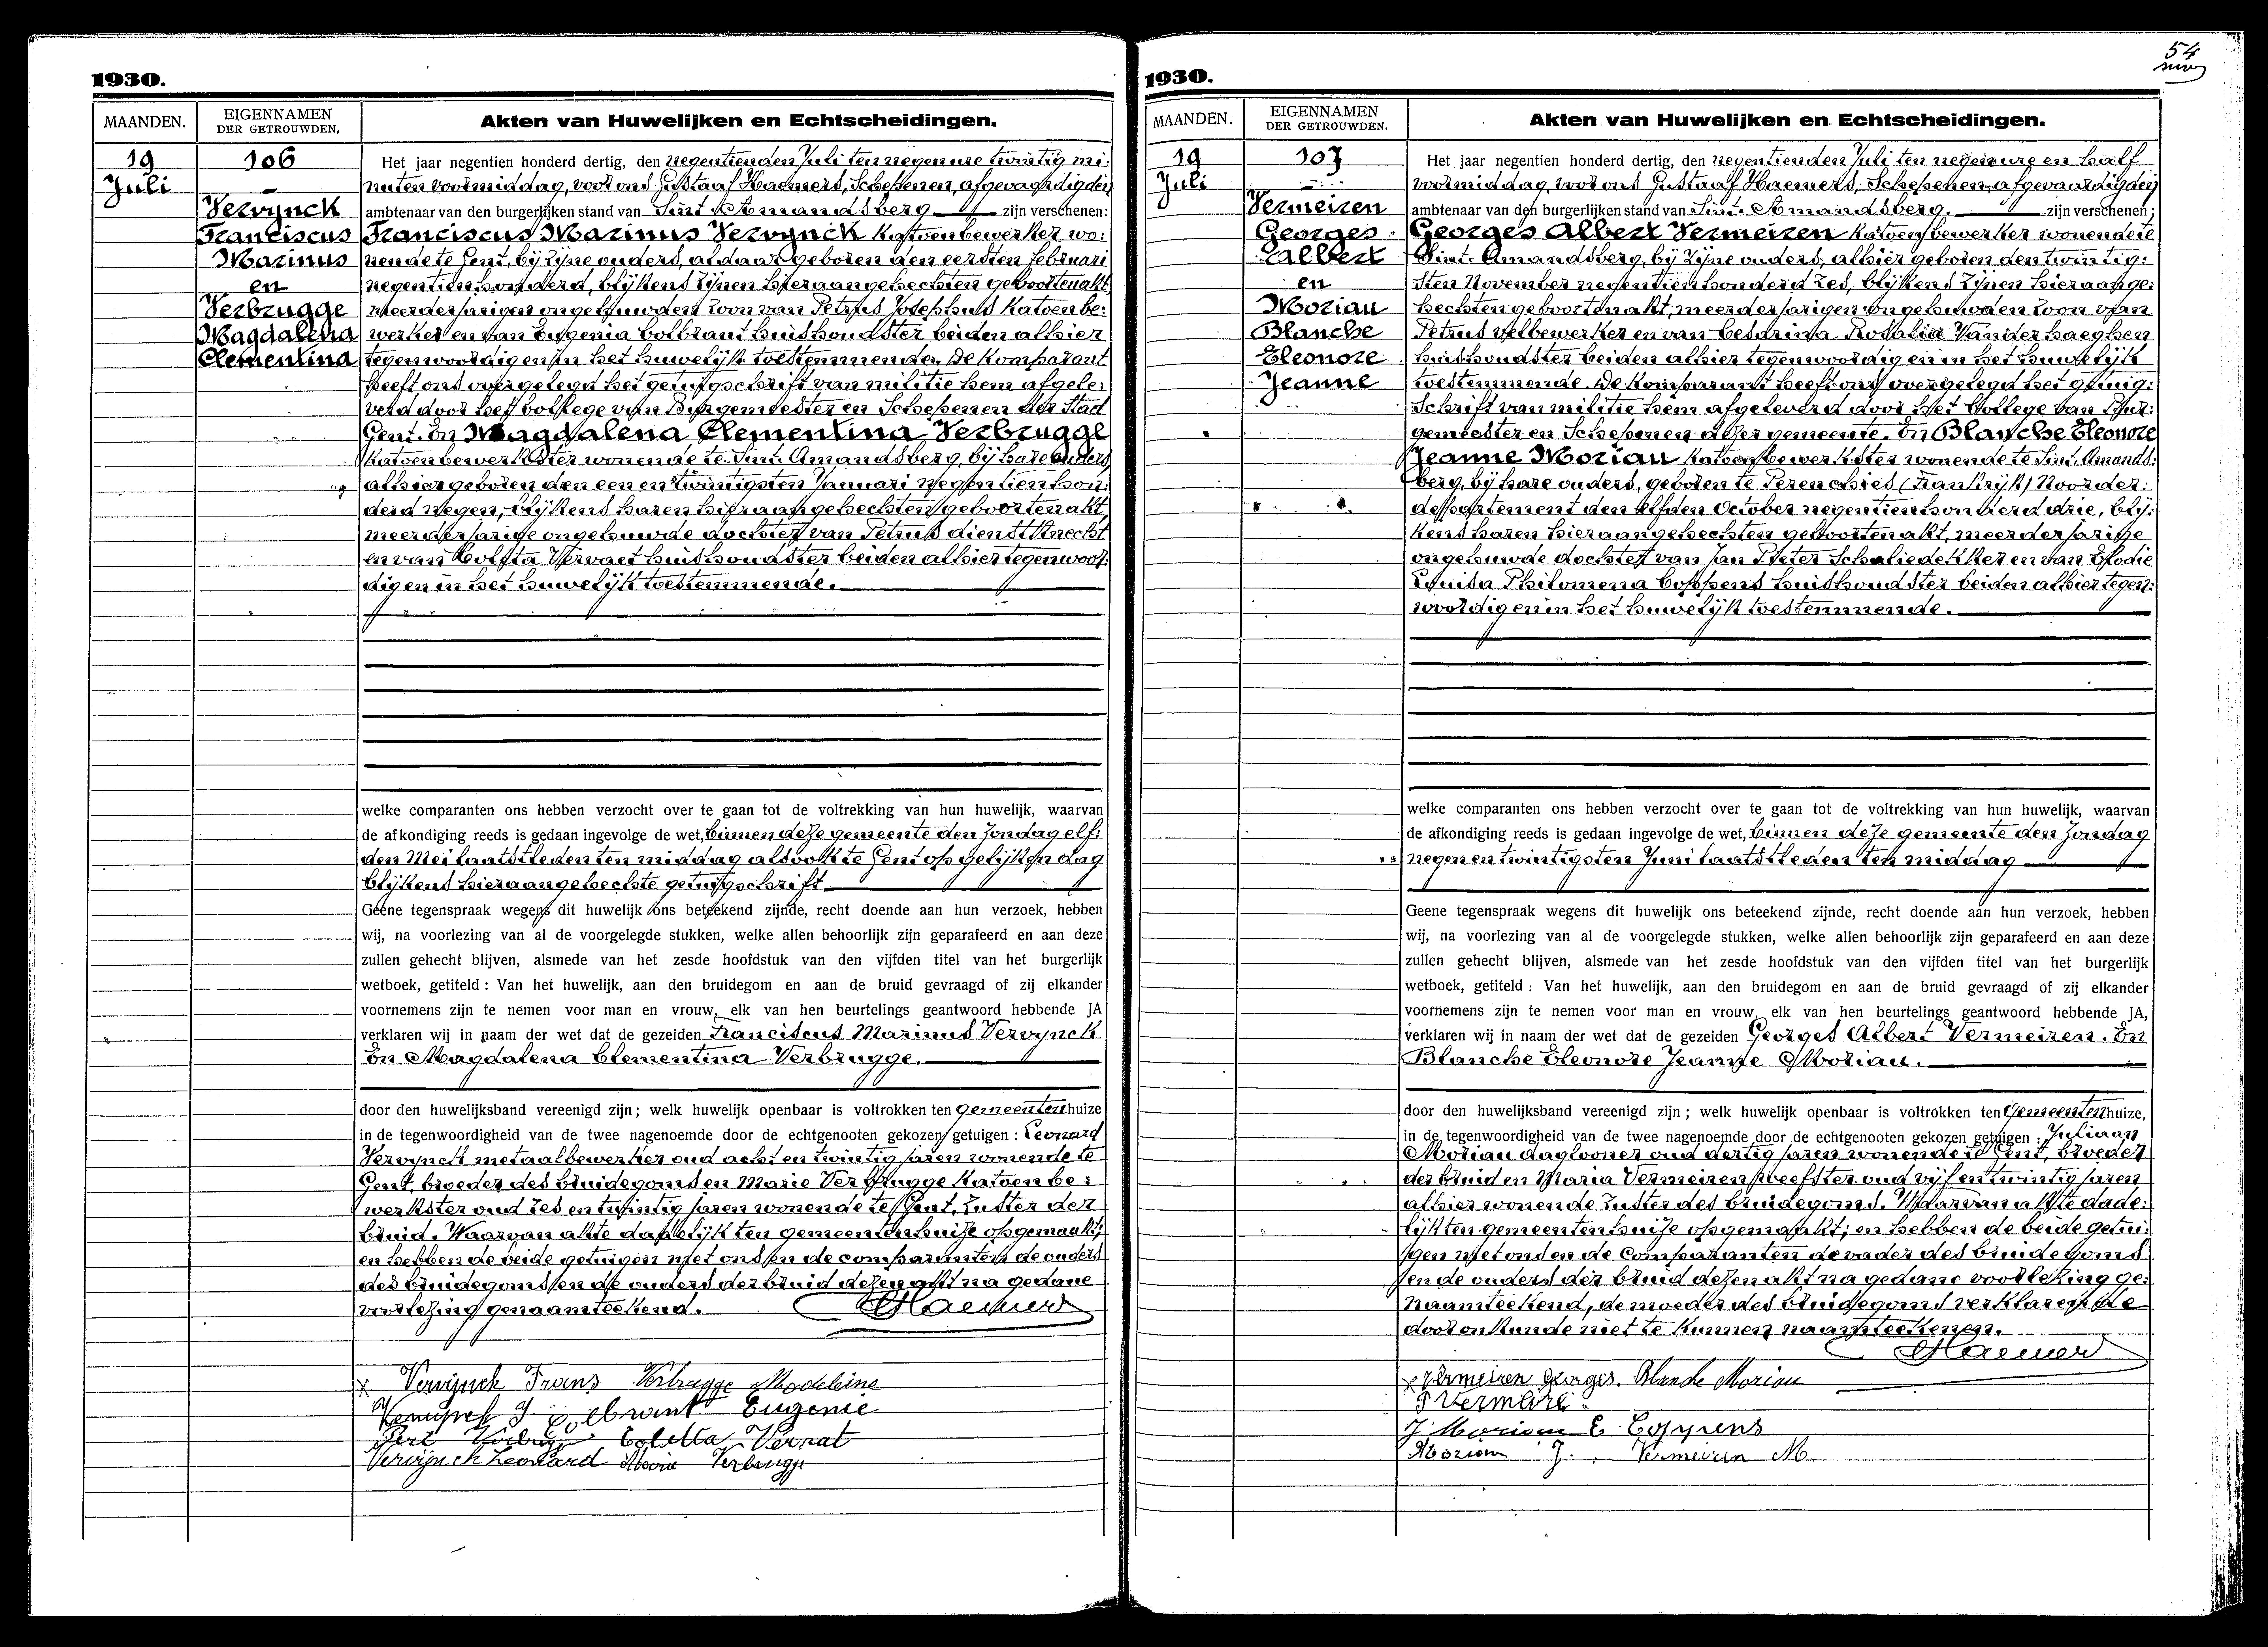 1930.
MAANDEN.
EIGENNAMEN
DER GETROUWDEN.
Akten van Huwelijken en Echtscheidingen.
19
Juli
106
Vervynck
Franciscus
Marinus
en
Verbrugge
Magdalena
Clementina
Het jaar negentien honderd dertig, den negentienden Juli ten negen ure twintig mi:
nuten voormiddag, voor ons Gustaaf Haemers, Schepenen, afgevaardigden
ambtenaar van den burgerlijken stand van Sint Amandsberg zijn verschenen:
Franciscus Marinus Vervynck katoenbewerker wo:
nende te Gent, bij zijne ouders, aldaar geboren den eersten februari
negentienhonderd, blijkens zijnen hieraangehechten geboortenakt,
meerderjarigen ongehuwden zoon van Petrus Josephus Katoenbe:
werker en van Eugenia Colbrant huishoudster beiden alhier
tegenwoordig en in het huwelijk toestemmende. De komparant
heeft ons overgelegd het getuigschrift van militie hem afgele:
verd door het College van Burgemeester en Schepenen der Stad
Gent. En Magdalena Clementina Verbrugge
katoenbewerkster wonende te Sint. Amandsberg, bij hare ouders
alhier geboren den een en twintigsten Januari negentienhon:
derd negen, blijkens haren hieraangehechten geboortenakt,
meerderjarige ongehuwde dochter van Petrus dienstknecht
en van Coleta Vervaet huishoudster beiden alhier tegenwoor:
dig en in het huwelijk toestemmende.
welke comparanten ons hebben verzocht over te gaan tot de voltrekking van hun huwelijk, waarvan
de afkondiging reeds is gedaan ingevolge de wet, binnen deze gemeente den Zondag elf:
den Mei laatstleden ten middag alsook te Gent op gelijken dag
blijkens hieraangehechte getuigschrift
Geene tegenspraak wegens dit huwelijk ons beteekend zijnde, recht doende aan hun verzoek, hebben
wij, na voorlezing van al de voorgelegde stukken, welke allen behoorlijk zijn geparafeerd en aan deze
zullen gehecht blijven, alsmede van het zesde hoofdstuk van den vijfden titel van het burgerlijk
wetboek, getiteld : Van het huwelijk, aan den bruidegom en aan de bruid gevraagd of zij elkander
voornemens zijn te nemen voor man en vrouw, elk van hen beurtelings geantwoord hebbende JA
verklaren wij in naam der wet dat de gezeiden Franciscus Marinus Vervynck
En Magdalena Clementina Verbrugge.
door den huwelijksband vereenigd zijn ; welk huwelijk openbaar is voltrokken ten Gemeentenhuize
in de tegenwoordigheid van de twee nagenoemde door de echtgenooten gekozen getuigen : Leonard
Vervynck metaalbewerker oud acht en twintig jaren wonende te
Gent, broeder des bruidegoms en Marie Verbrugge katoenbe:
werkster oud zes en twintig jaren wonende te Gent, zuster der
bruid. Waarvan akte dadelijk ten gemeentenhuize opgemaakt;
en hebben de beide getuigen met ons en de comparanten de ouders
des bruidegoms en de ouders der bruid dezen akt na gedane
voorlezing genaamteekend. Haemers
x Vervynck Frans Verbrugge Madeleine
Colbrant Eugenie
Coletta Vervat
Vervynck Leonard Maria Verbrugge
54
1930.
MAANDEN.
EIGENNAMEN
DER GETROUWDEN.
Akten van Huwelijken en Echtscheidingen.
19
Juli
107
Vermeiren
Georges
Albert
en
Moriau
Blanche
Eleonore
Jeanne
Het jaar negentien honderd dertig, den negentienden Juli ten negen ure en half
voormiddag, voor ons Gustaaf Haemers, Schepenen, afgevaardigden
ambtenaar van den burgerlijken stand van Sint. Amandsberg. zijn verschenen ;
Georges Albert Vermeiren katoenbewerker wonende te
Sint. Amandsberg, bij zijne ouders, alhier geboren den twintig:
sten November negentienhonderd zes, blijkens zijnen hieraange:
hechten geboortenakt, meerderjarigen ongehuwden zoon van
Petrus velbewerker en van Cesarina Rosalia Vander haeghen
huishoudster beiden alhier tegenwoordig en in het huwelijk
toestemmende. De komparant heeft ons overgelegd het getuig:
schrift van militie hem afgeleverd door het College van Bur:
gemeester en Schepenen dezer gemeente. En Blanche Eleonore
Jeanne Moriau katoenbewerkster wonende te Sint. Amands:
berg, bij hare ouders, geboren te Perenchies (Frankrijk) Noorder:
departement den elfden October negentienhonderd drie, blij:
kens haren hieraangehechten geboortenakt, meerderjarige
ongehuwde dochter van Jan Pieter Schaliedekker en van Elodie
Louisa Philomena Coppens huishoudster beiden alhier tegen:
woordig en in het huwelijk toestemmende.
welke comparanten ons hebben verzocht over te gaan tot de voltrekking van hun huwelijk, waarvan
de afkondiging reeds is gedaan ingevolge de wet, binnen deze gemeente den Zondag
negen en twintigsten Juni laatstleden ten middag
Geene tegenspraak wegens dit huwelijk ons beteekend zijnde, recht doende aan hun verzoek, hebben
wij, na voorlezing van al de voorgelegde stukken, welke allen behoorlijk zijn geparafeerd en aan deze
zullen gehecht blijven, alsmede van het zesde hoofdstuk van den vijfden titel van het burgerlijk
wetboek, getiteld : Van het huwelijk, aan den bruidegom en aan de bruid gevraagd of zij elkander
voornemens zijn te nemen voor man en vrouw, elk van hen beurtelings geantwoord hebbende JA,
verklaren wij in naam der wet dat de gezeiden Georges Albert Vermeiren. En
Blanche Eleonore Jeanne Moriau.
door den huwelijksband vereenigd zijn ; welk huwelijk openbaar is voltrokken ten Gemeentenhuize,
in de tegenwoordigheid van de twee nagenoemde door de echtgenooten gekozen getuigen : Juliaan
Moriau daglooner oud dertig jaren wonende te Gent, broeder
der bruid en Maria Vermeiren weefster oud vijf en twintig jaren
alhier wonende zuster des bruidegoms. Waarvan akte dade:
lijk ten gemeentenhuize opgemaakt; en hebben de beide getui:
gen met ons en de Comparanten de vader des bruidegoms
en de ouders der bruid dezen akt na gedane voorlezing ge:
naamteekend, de moeder des bruidegoms verklarende
door onkunde niet te kunnen naamteekenen.
Haemers
x Vermeiren Georges. Blanche Moriau
P Vermeire
J Moriau E Coppens
Moriau J. Vermeiren M.